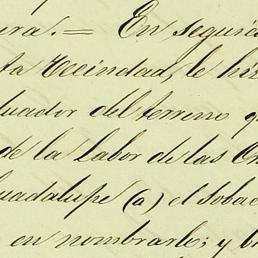 ura. = En seguid
ta Vecindad, le hi
luador del terreno q
de la Labor de las C
uadalupe (a) el Sobac
en nombrarlo; y b